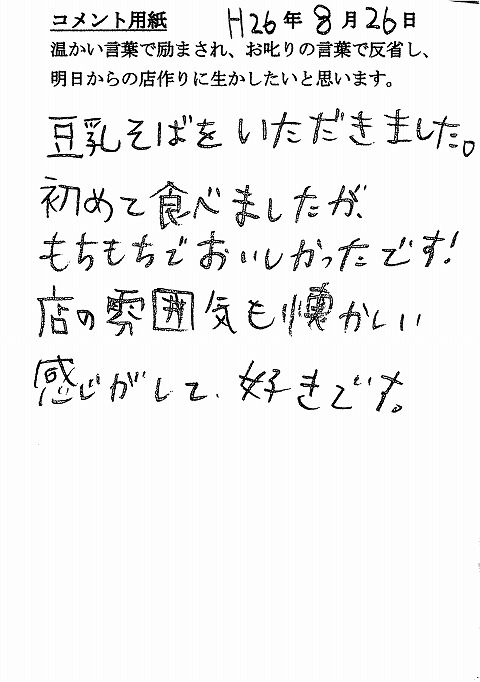 コメント用紙 H26年8月26日
温かい言葉で励まされ、お叱りの言葉で反省し、
明日からの店作りに生かしたいと思います。
豆乳そばをいただきました。
初めて食べましたが、
もちもちでおいしかったです!
店の雰囲気も懐かしい
感じがして、好きです。